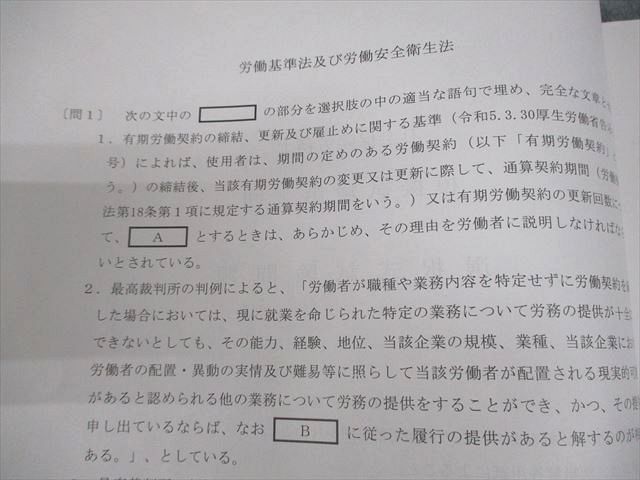 労働基準法及び労働安全衛生法
〔問１〕 次の文中の の部分を選択肢の中の適当な語句で埋め、完全な文章と
１．有期労働契約の締結、更新及び雇止めに関する基準（令和5.3.30厚生労働省告
号）によれば、使用者は、期間の定めのある労働契約（以下「有期労働契約」と
う。）の締結後、当該有期労働契約の変更又は更新に際して、通算契約期間（労働
法第18条第１項に規定する通算契約期間をいう。）又は有期労働契約の更新回数に
て、 A とするときは、あらかじめ、その理由を労働者に説明しなければな
いとされている。
２．最高裁判所の判例によると、「労働者が職種や業務内容を特定せずに労働契約を
した場合においては、現に就業を命じられた特定の業務について労務の提供が十全
できないとしても、その能力、経験、地位、当該企業の規模、業種、当該企業にお
労働者の配置・異動の実情及び難易等に照らして当該労働者が配置される現実的可
があると認められる他の業務について労務の提供をすることができ、かつ、その提
申し出ているならば、なお B に従った履行の提供があると解するのが
ある。」、としている。